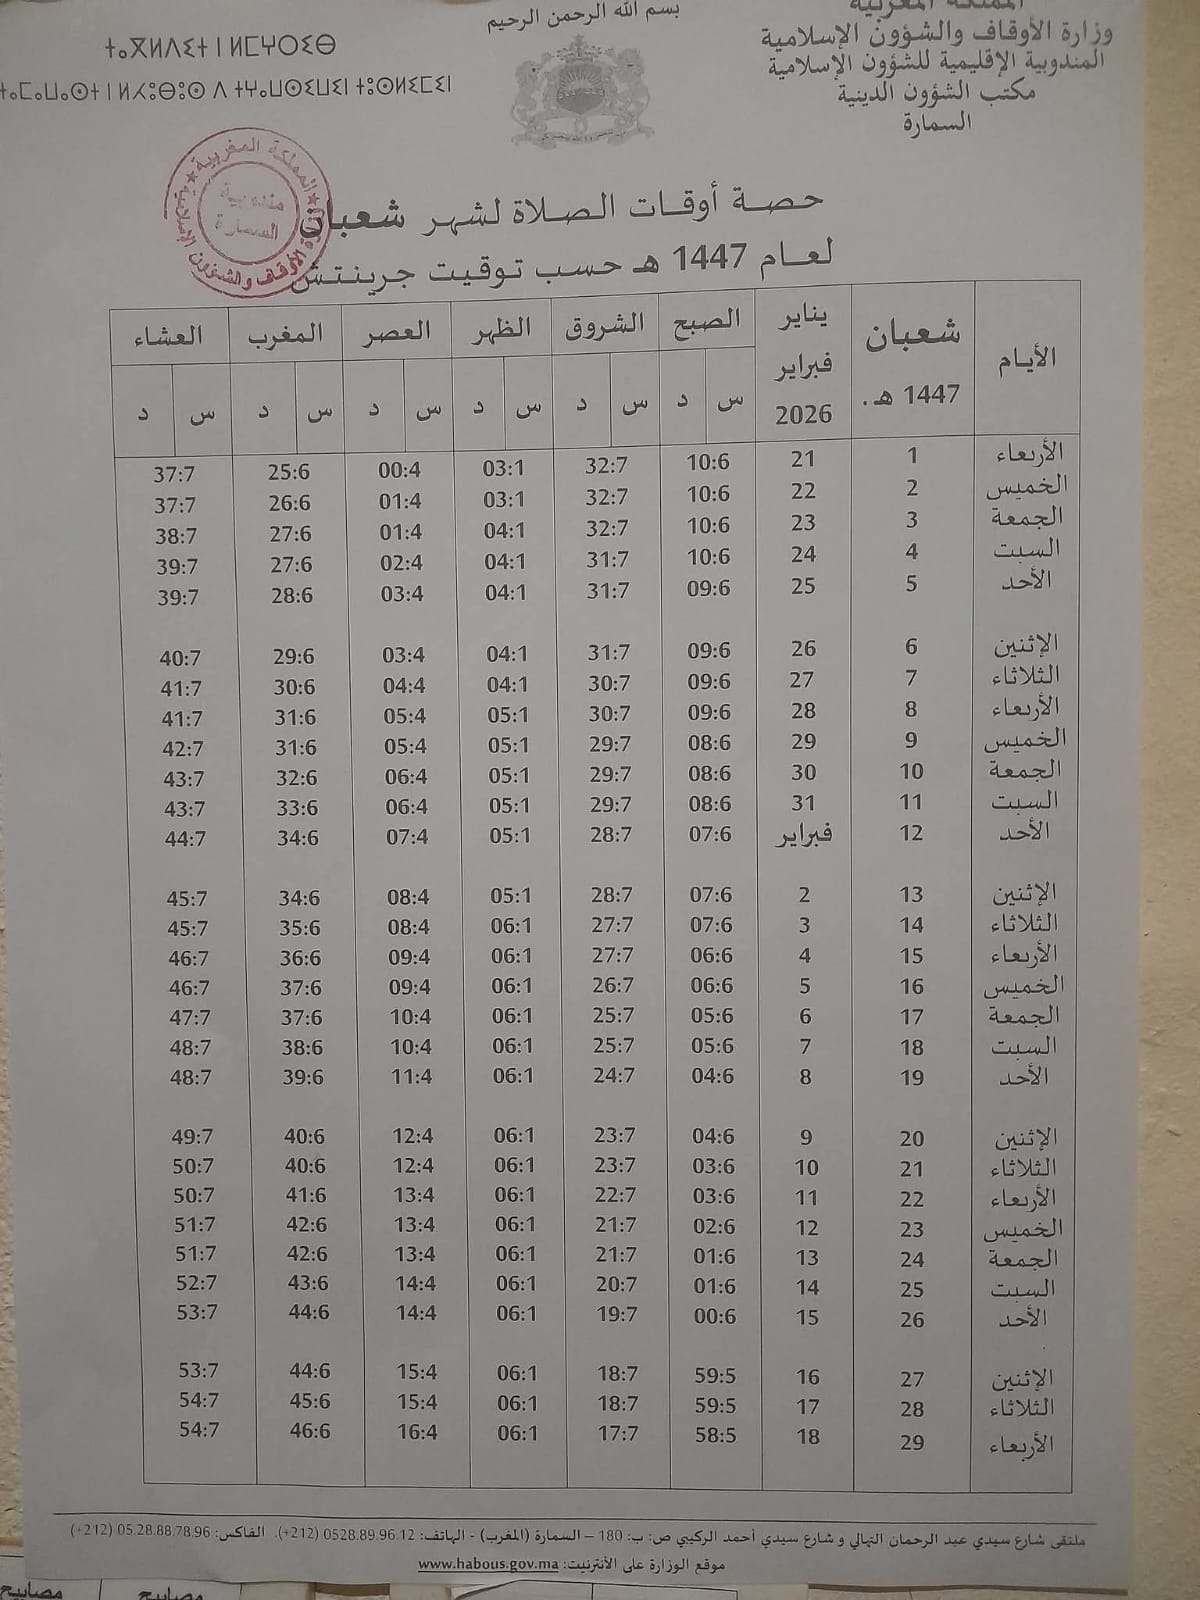 المملكة المغربية
وزارة الأوقاف والشؤون الإسلامية
المندوبية الإقليمية للشؤون الإسلامية
مكتب الشؤون الدينية
السمارة
بسم الله الرحمن الرحيم
ⵜⴰⴳⵍⴷⵉⵜ ⵏ ⵍⵎⵖⵔⵉⴱ
ⵜⴰⵎⴰⵡⴰⵙⵜ ⵏ ⵍⵃⵓⴱⵓⵙ ⴷ ⵜⵖⴰⵡⵙⵉⵡⵉⵏ ⵜⵓⵙⵍⵉⵎⵉⵏ
المملكة المغربية
وزارة الأوقاف والشؤون الإسلامية
مندوبية
السمارة
حصة أوقات الصلاة لشهر شعبان
لعام 1447 هـ حسب توقيت جرينتش
الأيام شعبان 1447 هـ. يناير فبراير 2026 الصبح الشروق الظهر العصر المغرب العشاء
س د س د س د س د س د س د
الأربعاء 1 21 10:6 32:7 03:1 00:4 25:6 37:7
الخميس 2 22 10:6 32:7 03:1 01:4 26:6 37:7
الجمعة 3 23 10:6 32:7 04:1 01:4 27:6 38:7
السبت 4 24 10:6 31:7 04:1 02:4 27:6 39:7
الأحد 5 25 09:6 31:7 04:1 03:4 28:6 39:7
الإثنين 6 26 09:6 31:7 04:1 03:4 29:6 40:7
الثلاثاء 7 27 09:6 30:7 04:1 04:4 30:6 41:7
الأربعاء 8 28 09:6 30:7 05:1 05:4 31:6 41:7
الخميس 9 29 08:6 29:7 05:1 05:4 31:6 42:7
الجمعة 10 30 08:6 29:7 05:1 06:4 32:6 43:7
السبت 11 31 08:6 29:7 05:1 06:4 33:6 43:7
الأحد 12 فبراير 07:6 28:7 05:1 07:4 34:6 44:7
الإثنين 13 2 07:6 28:7 05:1 08:4 34:6 45:7
الثلاثاء 14 3 07:6 27:7 06:1 08:4 35:6 45:7
الأربعاء 15 4 06:6 27:7 06:1 09:4 36:6 46:7
الخميس 16 5 06:6 26:7 06:1 09:4 37:6 46:7
الجمعة 17 6 05:6 25:7 06:1 10:4 37:6 47:7
السبت 18 7 05:6 25:7 06:1 10:4 38:6 48:7
الأحد 19 8 04:6 24:7 06:1 11:4 39:6 48:7
الإثنين 20 9 04:6 23:7 06:1 12:4 40:6 49:7
الثلاثاء 21 10 03:6 23:7 06:1 12:4 40:6 50:7
الأربعاء 22 11 03:6 22:7 06:1 13:4 41:6 50:7
الخميس 23 12 02:6 21:7 06:1 13:4 42:6 51:7
الجمعة 24 13 01:6 21:7 06:1 13:4 42:6 51:7
السبت 25 14 01:6 20:7 06:1 14:4 43:6 52:7
الأحد 26 15 00:6 19:7 06:1 14:4 44:6 53:7
الإثنين 27 16 59:5 18:7 06:1 15:4 44:6 53:7
الثلاثاء 28 17 59:5 18:7 06:1 15:4 45:6 54:7
الأربعاء 29 18 58:5 17:7 06:1 16:4 46:6 54:7
ملتقى شارع سيدي عبد الرحمان التهالي و شارع سيدي أحمد الركيبي ص: ب: 180 – السمارة (المغرب) - الهاتف: 0528.89.96.12 (212+). الفاكس: 05.28.88.78.96 (212+)
موقع الوزارة على الأنترنيت: www.habous.gov.ma
مصابيح
مصابيح